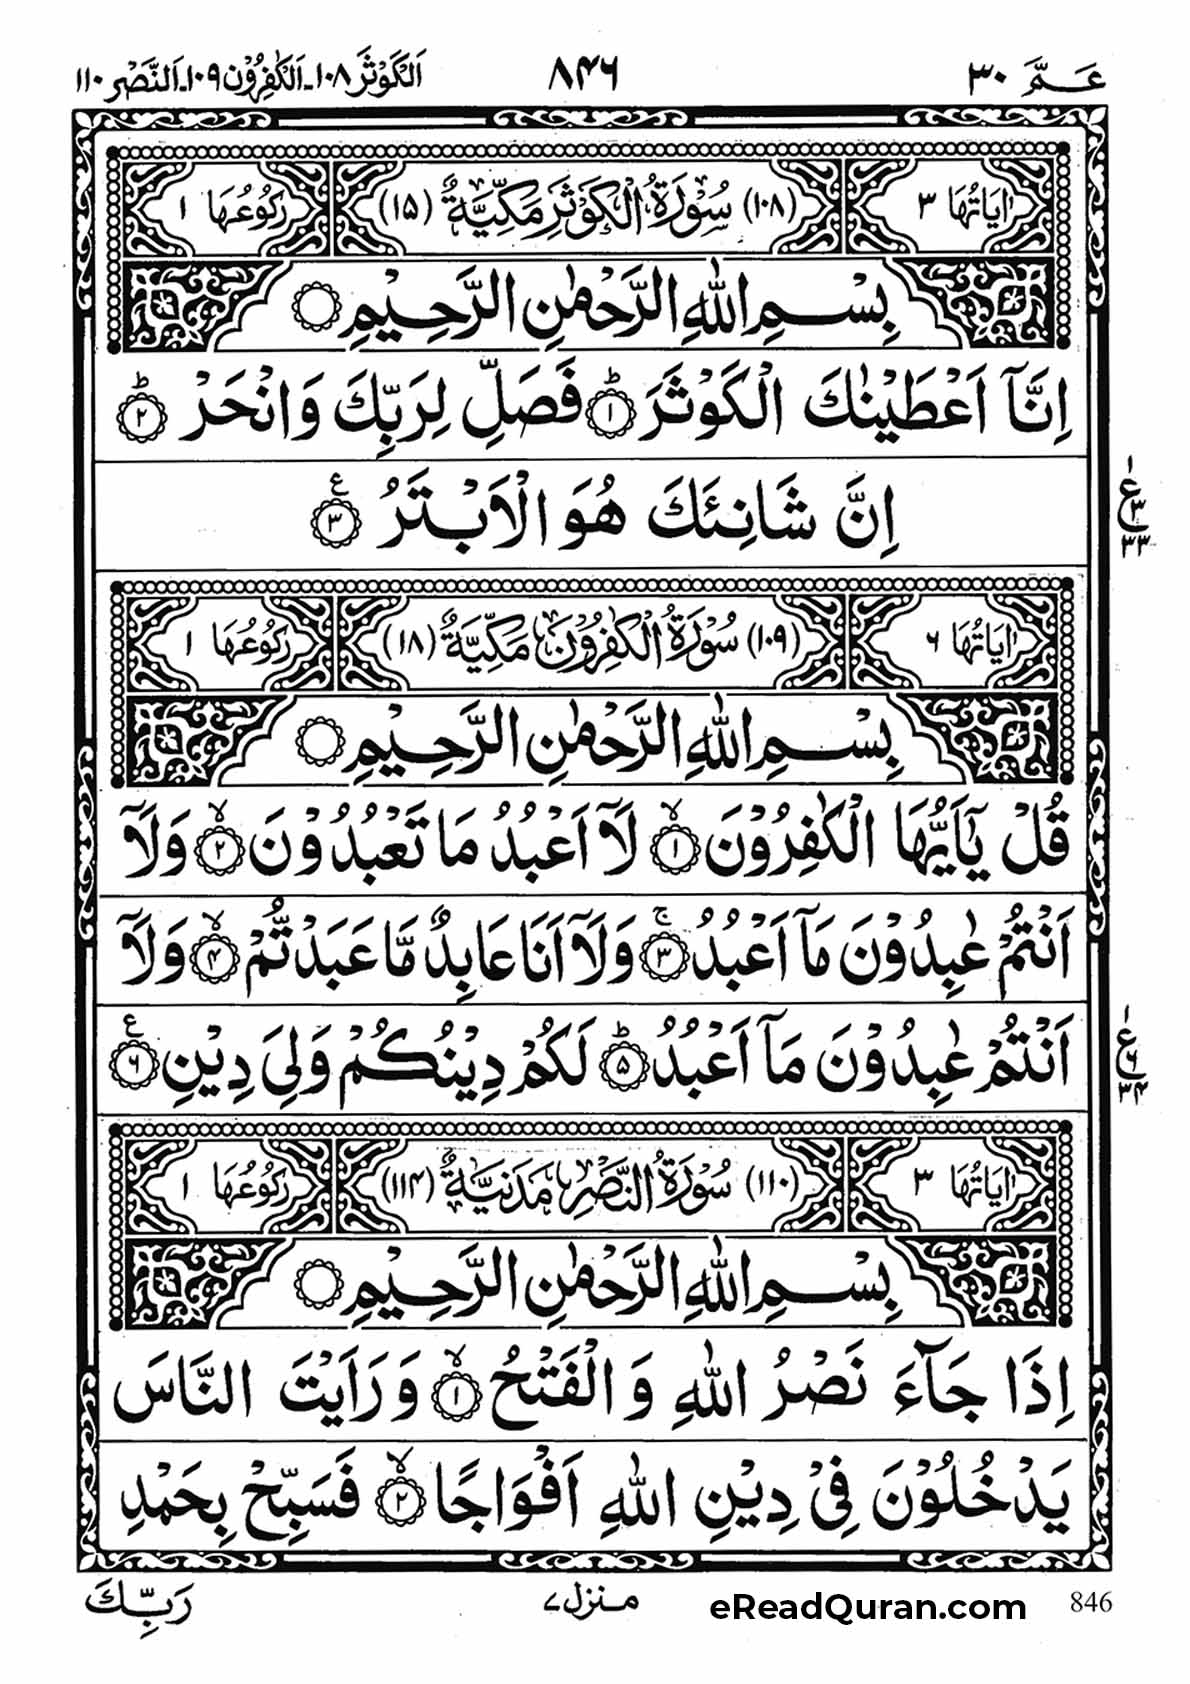 عَمَّ ۳۰ ۸۴۶ اَلْكَوْثَر ۱۰۸-اَلْكٰفِرُوْن ۱۰۹-اَلنَّصْر ۱۱۰
اٰيَاتُهَا ۳ (۱۰۸) سُوْرَةُ الْكَوْثَرِ مَكِّيَّةٌ (۱۵) رُكُوْعُهَا ۱
بِسْمِ اللّٰهِ الرَّحْمٰنِ الرَّحِيْمِ ○
اِنَّاۤ اَعْطَيْنٰكَ الْكَوْثَرَ ؕ۱ فَصَلِّ لِرَبِّكَ وَانْحَرْ ؕ۲
اِنَّ شَانِئَكَ هُوَ الْاَبْتَرُ ۳ ع
ع ۱ ۳ ۳۳
اٰيَاتُهَا ۶ (۱۰۹) سُوْرَةُ الْكٰفِرُوْنَ مَكِّيَّةٌ (۱۸) رُكُوْعُهَا ۱
بِسْمِ اللّٰهِ الرَّحْمٰنِ الرَّحِيْمِ ○
قُلْ يٰۤاَيُّهَا الْكٰفِرُوْنَ ۙ۱ لَاۤ اَعْبُدُ مَا تَعْبُدُوْنَ ۙ۲ وَلَاۤ
اَنْتُمْ عٰبِدُوْنَ مَاۤ اَعْبُدُ ۚ۳ وَلَاۤ اَنَا عَابِدٌ مَّا عَبَدْتُّمْ ۙ۴ وَلَاۤ
اَنْتُمْ عٰبِدُوْنَ مَاۤ اَعْبُدُ ؕ۵ لَكُمْ دِيْنُكُمْ وَلِيَ دِيْنِ ۶ ع
ع ۱ ۶ ۳۴
اٰيَاتُهَا ۳ (۱۱۰) سُوْرَةُ النَّصْرِ مَدَنِيَّةٌ (۱۱۴) رُكُوْعُهَا ۱
بِسْمِ اللّٰهِ الرَّحْمٰنِ الرَّحِيْمِ ○
اِذَا جَآءَ نَصْرُ اللّٰهِ وَالْفَتْحُ ۙ۱ وَرَاَيْتَ النَّاسَ
يَدْخُلُوْنَ فِيْ دِيْنِ اللّٰهِ اَفْوَاجًا ۙ۲ فَسَبِّحْ بِحَمْدِ
رَبِّكَ منزل ۷ eReadQuran.com 846